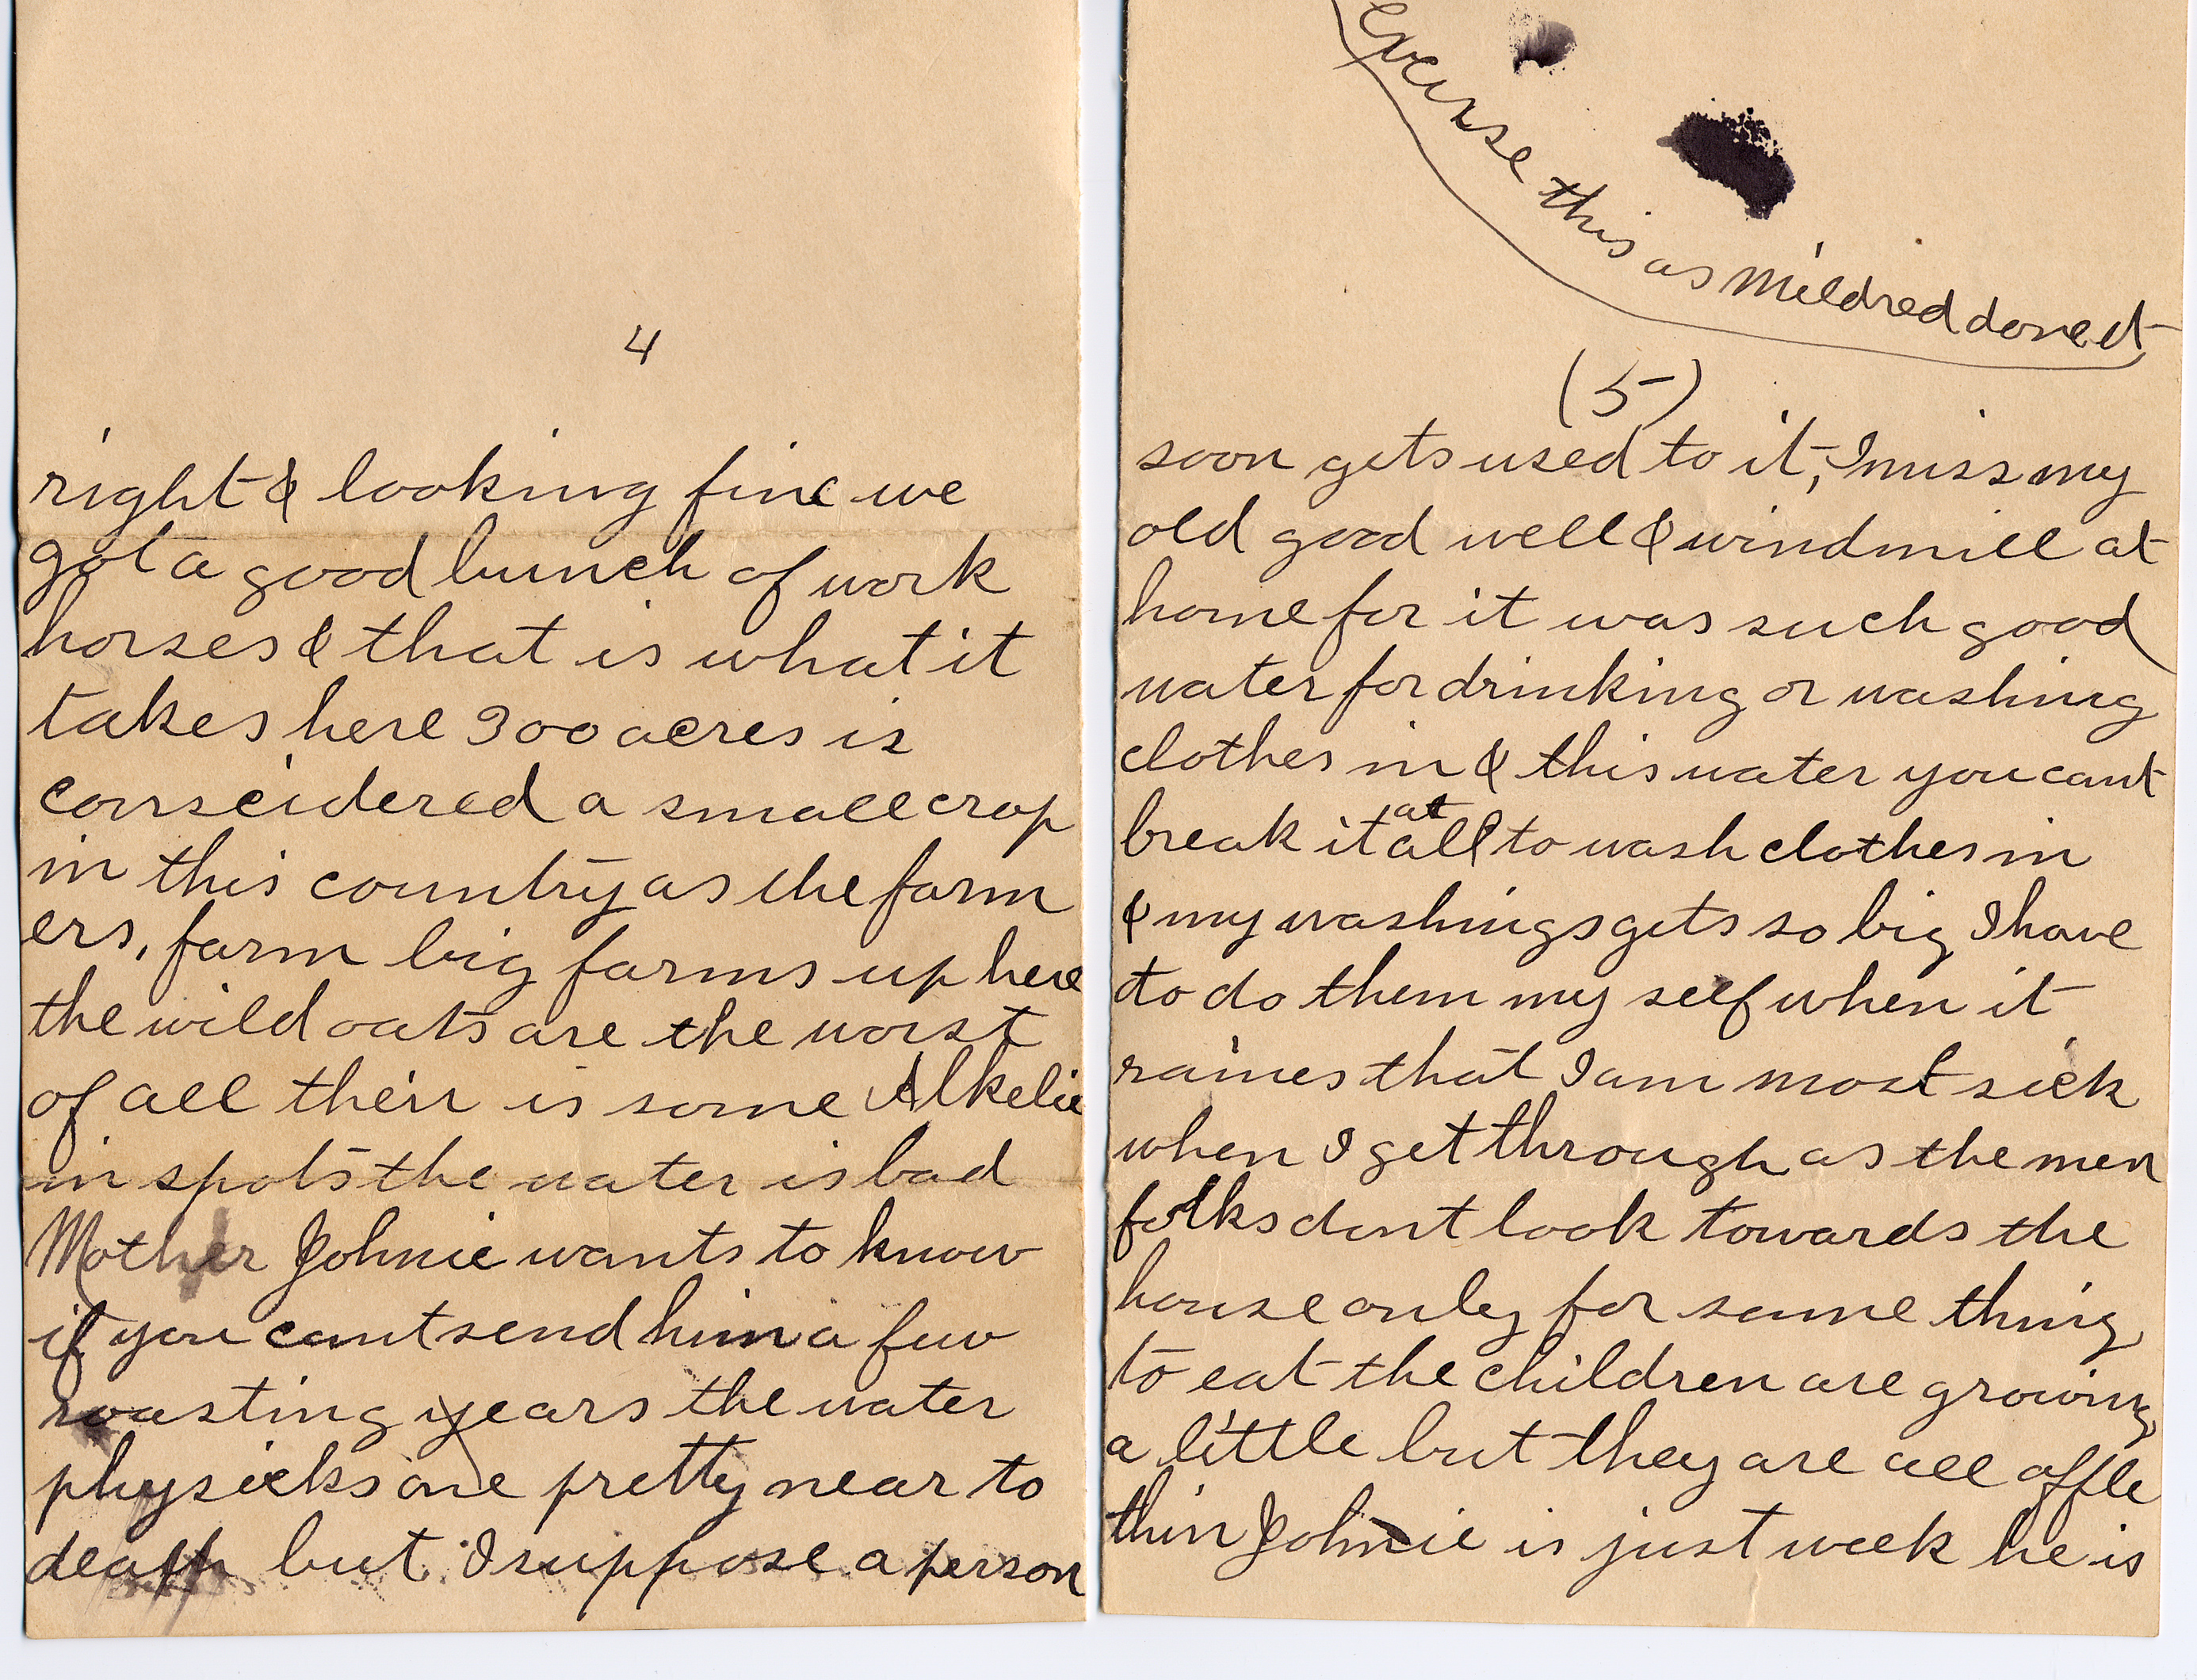 4
right & looking fine we
got a good bunch of work
horses & that is what it
takes here 300 acres is
conseidered a small crop
in this country as the farm
ers, farm big farms up here
the wild oats are the worst
of all their is some Alkelie
in spots the water is bad
Mother Johnie wants to know
if you cant send him a few
roasting years the water
physicks one pretty near to
death but I suppose a person
excuse this as Mildred done it
(5)
soon gets used to it, I miss my
old good well & windmill at
home for it was such good
water for drinking or washing
clothes in & this water you cant
break it at all to wash clothes in
& my washings gets so big I have
to do them my self when it
raines that I am most sick
when I get through as the men
folks dont look towards the
house only for some thing
to eat the children are growing
a little but they are all offle
thin Johnie is just week he is